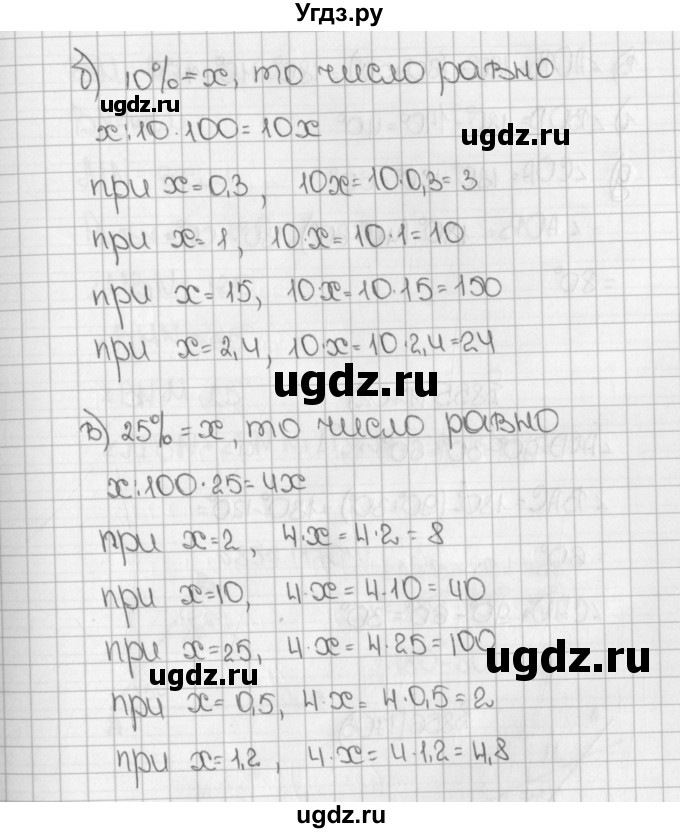 Угдз.ру
б) 10% = x, то число равно
ugdz.ru
ugdz.ru
x:10·100=10x
при x=0,3, 10x=10·0,3=3
при x=1, 10·x=10·1=10
при x=15, 10·x=10·15=150
при x=2,4, 10·x=10·2,4=24
ugdz.ru
в) 25% = x, то число равно
x:100·25=4x
при x=2, 4·x=4·2=8
при x=10, 4·x=4·10=40
при x=25, 4·x=4·25=100
ugdz.ru
ugdz.ru
при x=0,5, 4·x=4·0,5=2
при x=1,2, 4·x=4·1,2=4,8
ugdz.ru